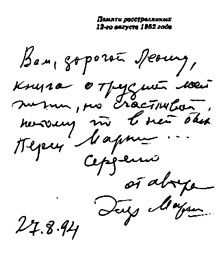 Памяти расстрелянных
12-го августа 1952 года
Вам, дорогой Леонид,
книга о трудной моей
жизни, но счастливой,
потому что в ней был
Перец Маркиш ...
Сердечно
от автора
Эстер Маркиш
27.8.94